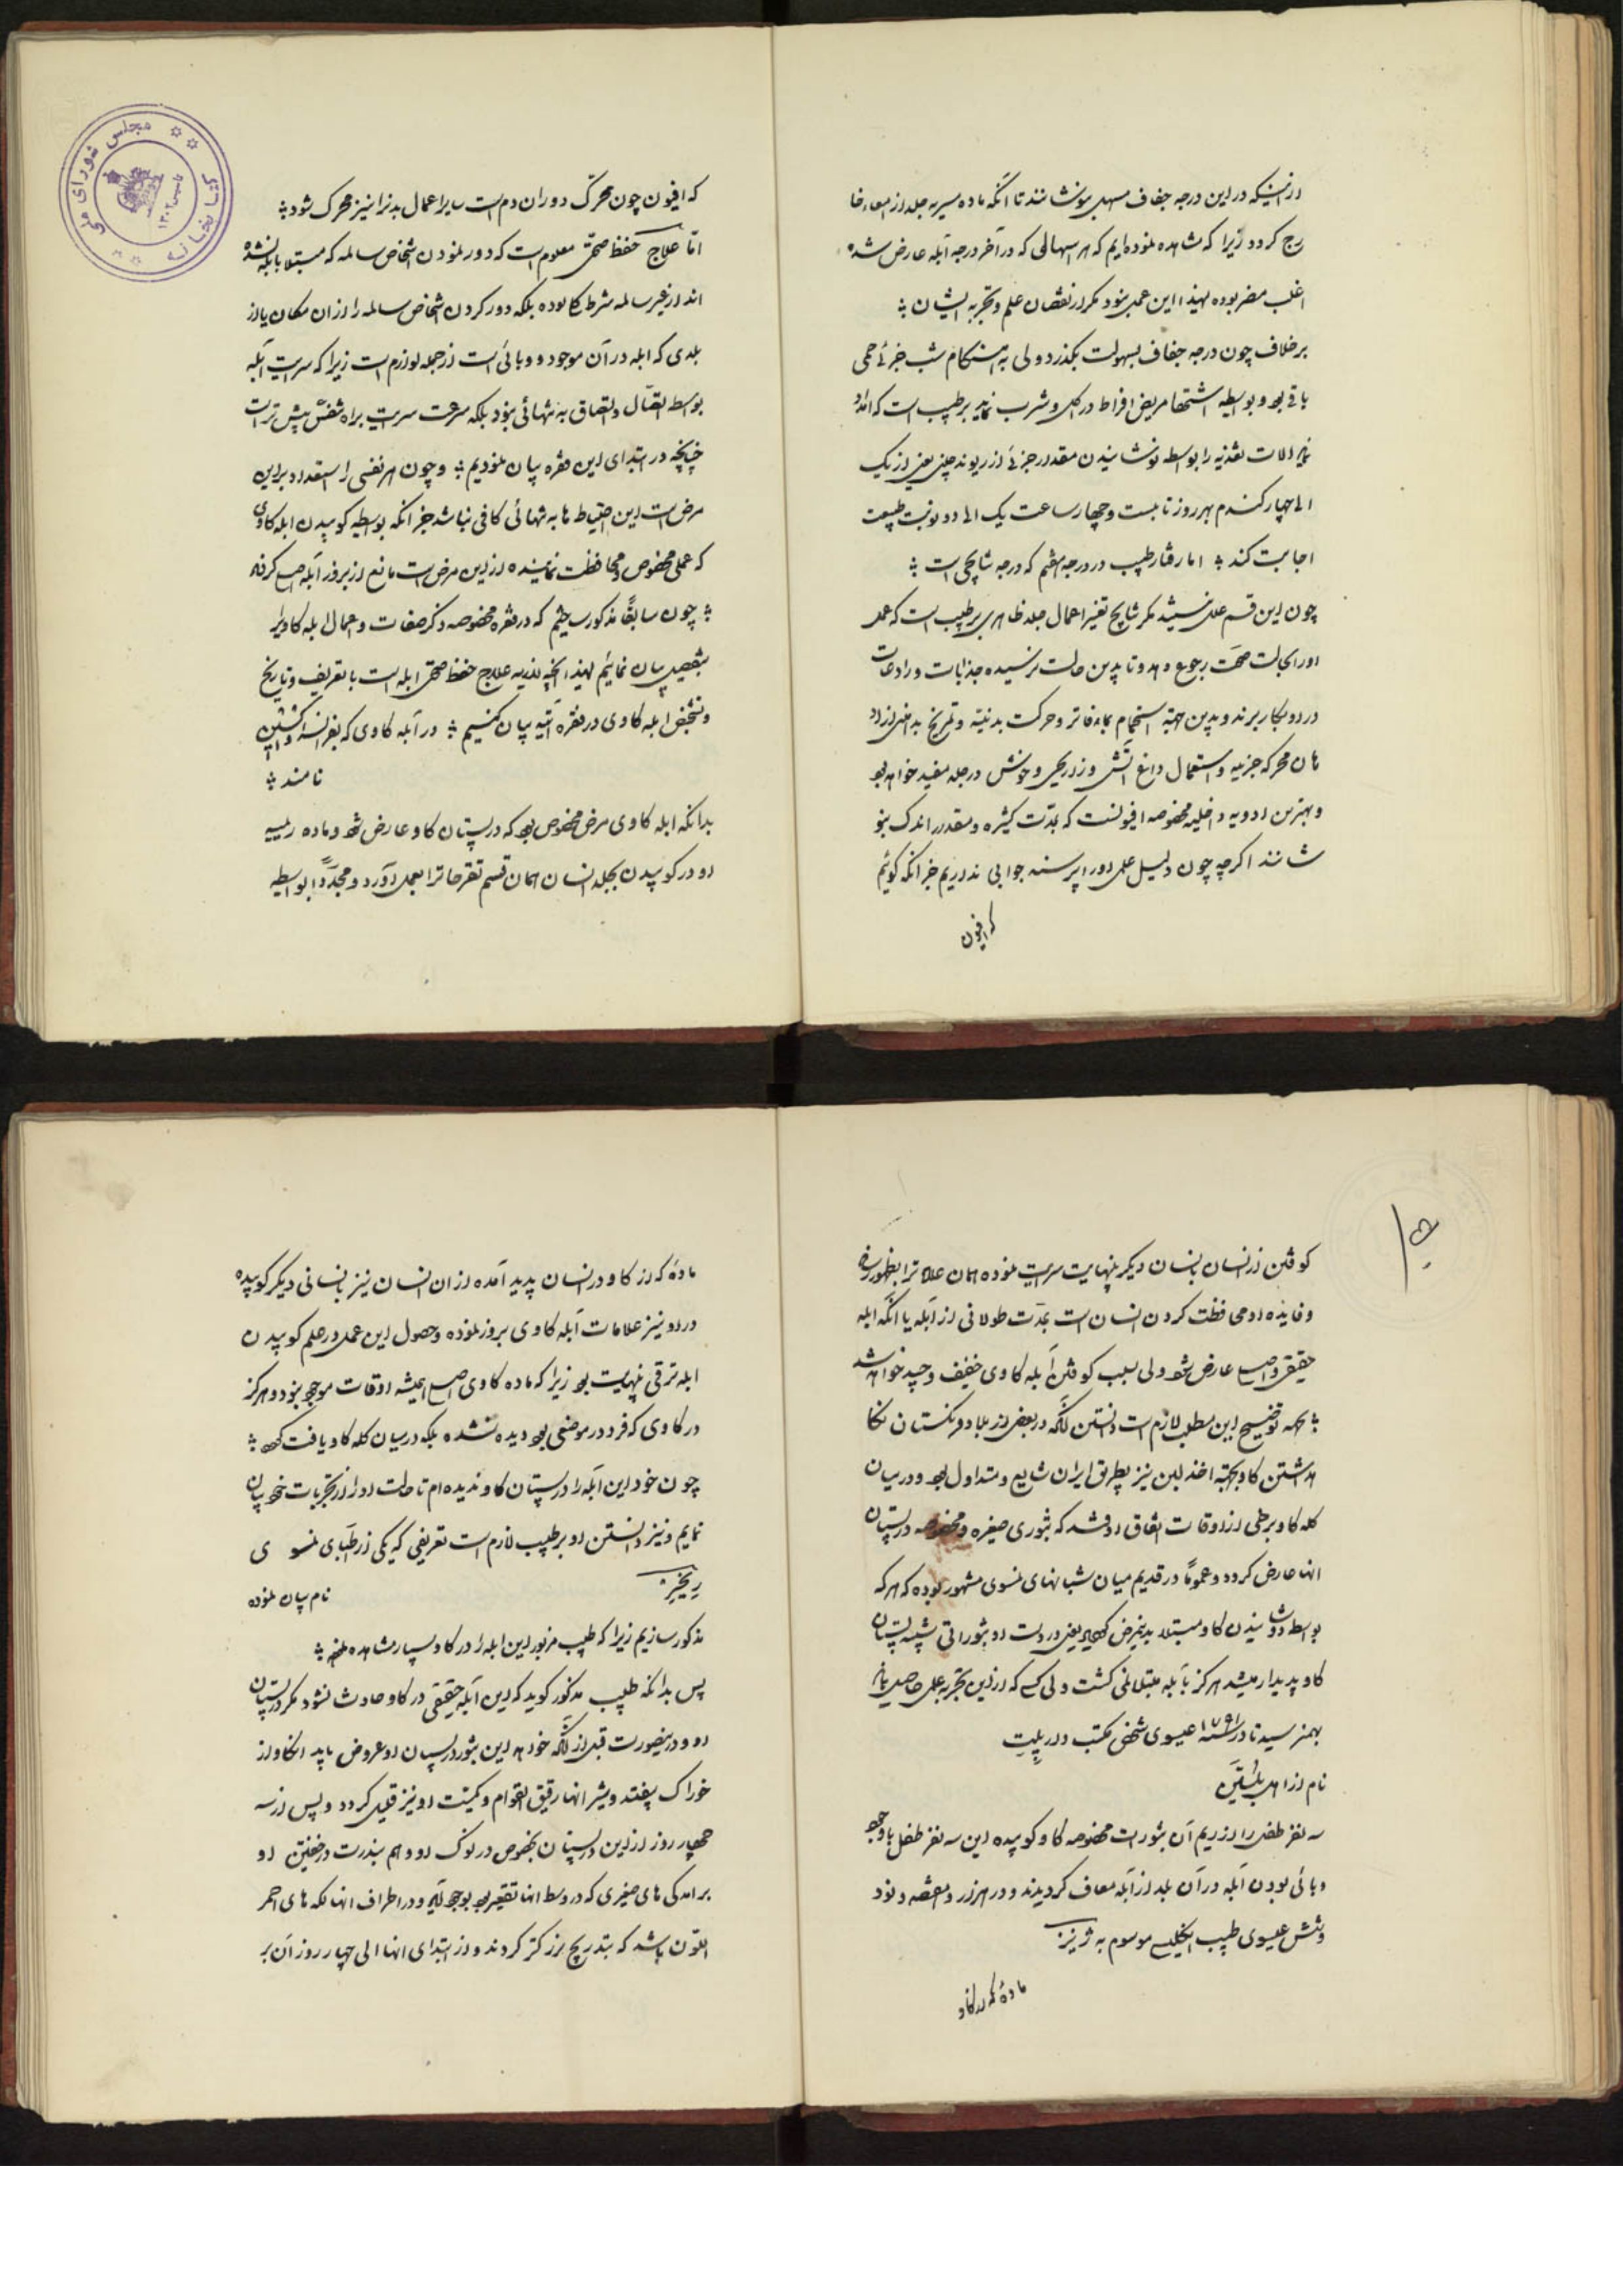 ازینکه در این درجه جفاف مسهل بنوشانند تا آنکه ماده مسریه جلد از امعاء خا
رج گردد زیرا که مشاهده نموده‌ایم که هر اسهالی که در آخر درجه آبله عارض شده
اغلب مضر بوده لهذا این عمل نبود مگر از نقصان علم و تجربه ایشان
برخلاف چون درجه جفاف بسهولت بگذرد ولی به هنگام شب جزئی حمی
باقی بود و بواسطه اشتها مریض افراط در اکل و شرب نماید بر طبیب است که امداد
نماید آلات تغذیه را بواسطه نوشانیدن مقدار جزئی از ریوند چینی یعنی از یک
الی چهار گندم بهر روز تا بیست و چهار ساعت یک الی دو نوبت طبیعت
اجابت کند اما رفتار طبیب در درجه هفتم که درجه نتایجی است
چون این قسم علل نیستند مگر نتایج تغیر اعمال جلد ظاهری بر طبیب است که عمل
او را بحالت صحت رجوع دهد و تا بدین حالت نرسیده جذابات و رادعات
در او بکار برند و بدین جهت استحمام بماء فاتر و حرکت بدنیه و تمریخ بدهن از اد
هان محرکه جزئیه و استعمال داغ آتش و زراریحی و خوش در جلد مفید خواهد بود
و بهترین ادویه داخلیه مخصوصه افیونست که بمدت کثیره و مقدار اندک بنو
شانند اگر چه چون دلیل علمی او را پرسند جوابی نداریم جز آنکه گوئیم
که افیون
که افیون چون محرک دوران دم است سایر اعمال بدن را نیز محرک شود
اما علاج حفظ صحتی معلوم است که دور نمودن اشخاص سالمه که مبتلا بآبله نشده
اند از غیر سالمه شرط کلی بوده بلکه دور کردن اشخاص سالمه را از ان مکان یا از
بلدی که ابله در آن موجود و وبائی است از جمله لوازم است زیرا که سرایت آبله
بواسطه اتصال و التصاق به تنهائی نبود بلکه سرعت سرایت براه تنفس بیش‌تر است
چنانچه در ابتدای این فقره بیان نمودیم و چون هر نفسی را استعداد بر این
مرض است این احتیاط ها به تنهائی کافی نباشد جز آنکه بواسطه کوبیدن ابله کاوی
که عملی مخصوص و محافظت نماینده از این مرض است مانع از بروز آبله اصلی گردند
چون سابقاً مذکور ساختیم که در فقره مخصوصه ذکر صفات و اعمال ابله کاوی را
بتفصیل بیان نمائیم لهذا آنچه لازمه علاج حفظ صحتی ابله است با تعریف و تاریخ
و تشخیص ابله کاوی در فقره آتیه بیان کنیم در آبله کاوی که بفرانسه واکسین
نامند
بدانکه ابله کاوی مرض مخصوص بود که در پستان کاو عارض شود و ماده ریمیه
او در کوبیدن بجلد انسان همان قسم تقرحات را بعمل آورد و مجدداً بواسطه
کوفتن از انسان بانسان دیگر بنهایت سرایت نموده همان علامات را بظهور رساند
و فایده او محافظت کردن انسان است بمدت طولانی از آبله یا آنکه ابله
حقیقی و اصلی عارض شود ولی بسبب کوفتن آبله کاوی خفیف و جید خواهد شد
بجهه توضیح این مطلب لازم است دانستن آنکه در بعضی از بلاد فرنگستان نگا
هداشتن کاو بجهته اخذ لبن نیز بطریق ایران شایع و متداول بود و در میان
کله کاو برخی از اوقات اتفاق افتد که بثوری صغیره و مخصوصه در پستان
انها عارض گردد و عموماً در قدیم میان شبانهای نمسوی مشهور بوده که هر که
بواسطه دوشانیدن کاو مبتلا بدین مرض گردید یعنی در دست او بثوراتی شبیه پستان
کاو پدیدار میشد هرگز بآبله مبتلا نمی گشت ولی کسی که از این تجربه عملی حاصل نماید
بهم نرسید تا در سنه ۱۷۹۱ عیسوی شخصی مکتب دار پلیت
نام از اهل هلشتین
سه نفر طفل را از ریم آن بثورات مخصوصه کاو کوبیده این سه نفر طفل با وجود
وبائی بودن آبله در آن بلد از آبله معاف گردیدند و در هزار و هفتصد و نود
و شش عیسوی طبیب انگلیسی موسوم به ژنیر
ماده که از کاو
ماده که از کاو در انسان پدید آمده از ان انسان نیز بانسانی دیگر کوبیده
در او نیز علامات آبله کاوی بروز نموده و حصول این عمل در علم کوبیدن
ابله ترقی بنهایت بود زیرا که ماده کاوی اصلی همیشه اوقات موجود نبود و هرگز
در کاوی که فرد در موضعی بود دیده نشده بلکه در میان کله کاو یافت گردد
چون خود این آبله را در پستان کاو ندیده‌ام تا حالت او را از تجربیات خود بیان
نمایم و نیز دانستن او بر طبیب لازم است تعریفی که یکی از اطبای نمسوی
ریخیر نام بیان نموده
مذکور سازیم زیرا که طبیب مزبور این ابله را در کاو بسیار مشاهده نموده
پس بدانکه طبیب مذکور گوید که این آبله حقیقی در کاو حادث نشود مگر در پستان
او و در اینصورت قبل از آنکه خواهد این بثور در پستان او عروض یابد انکاو از
خوراک بیفتد و شیر انها رقیق القوام و کمیت او نیز قلیل گردد و پس از سه
چهار روز از این در پستان بخصوص در نوک او و هم بندرت در خفتین او
برامدگی های صغیری که در وسط انها تقعیر بود بوجود آید و در اطراف انها لکه های احمر
اللون باشد که بتدریج بزرگتر گردند و از ابتدای انها الی چهار روز آن بر